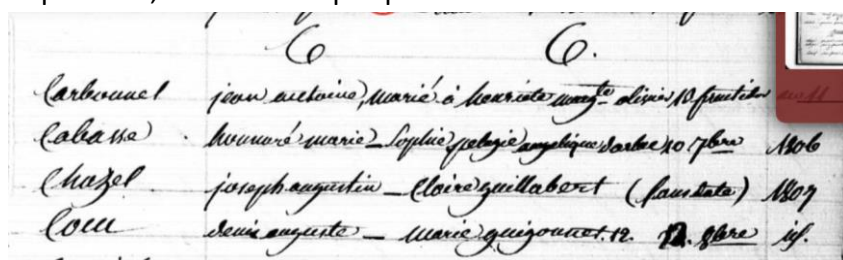 C C.
Carbonnel jean antoine, marié à henriete margte olivier 18 fructidor an 11
Cabasse honnoré marie _ Sophie pelagie angelique barbe 10 7bre 1806
Chazel joseph augustin _ Claire guillabert (sans date) 1807
denis auguste _ marie guigonnet. 12. 12. 8bre id.